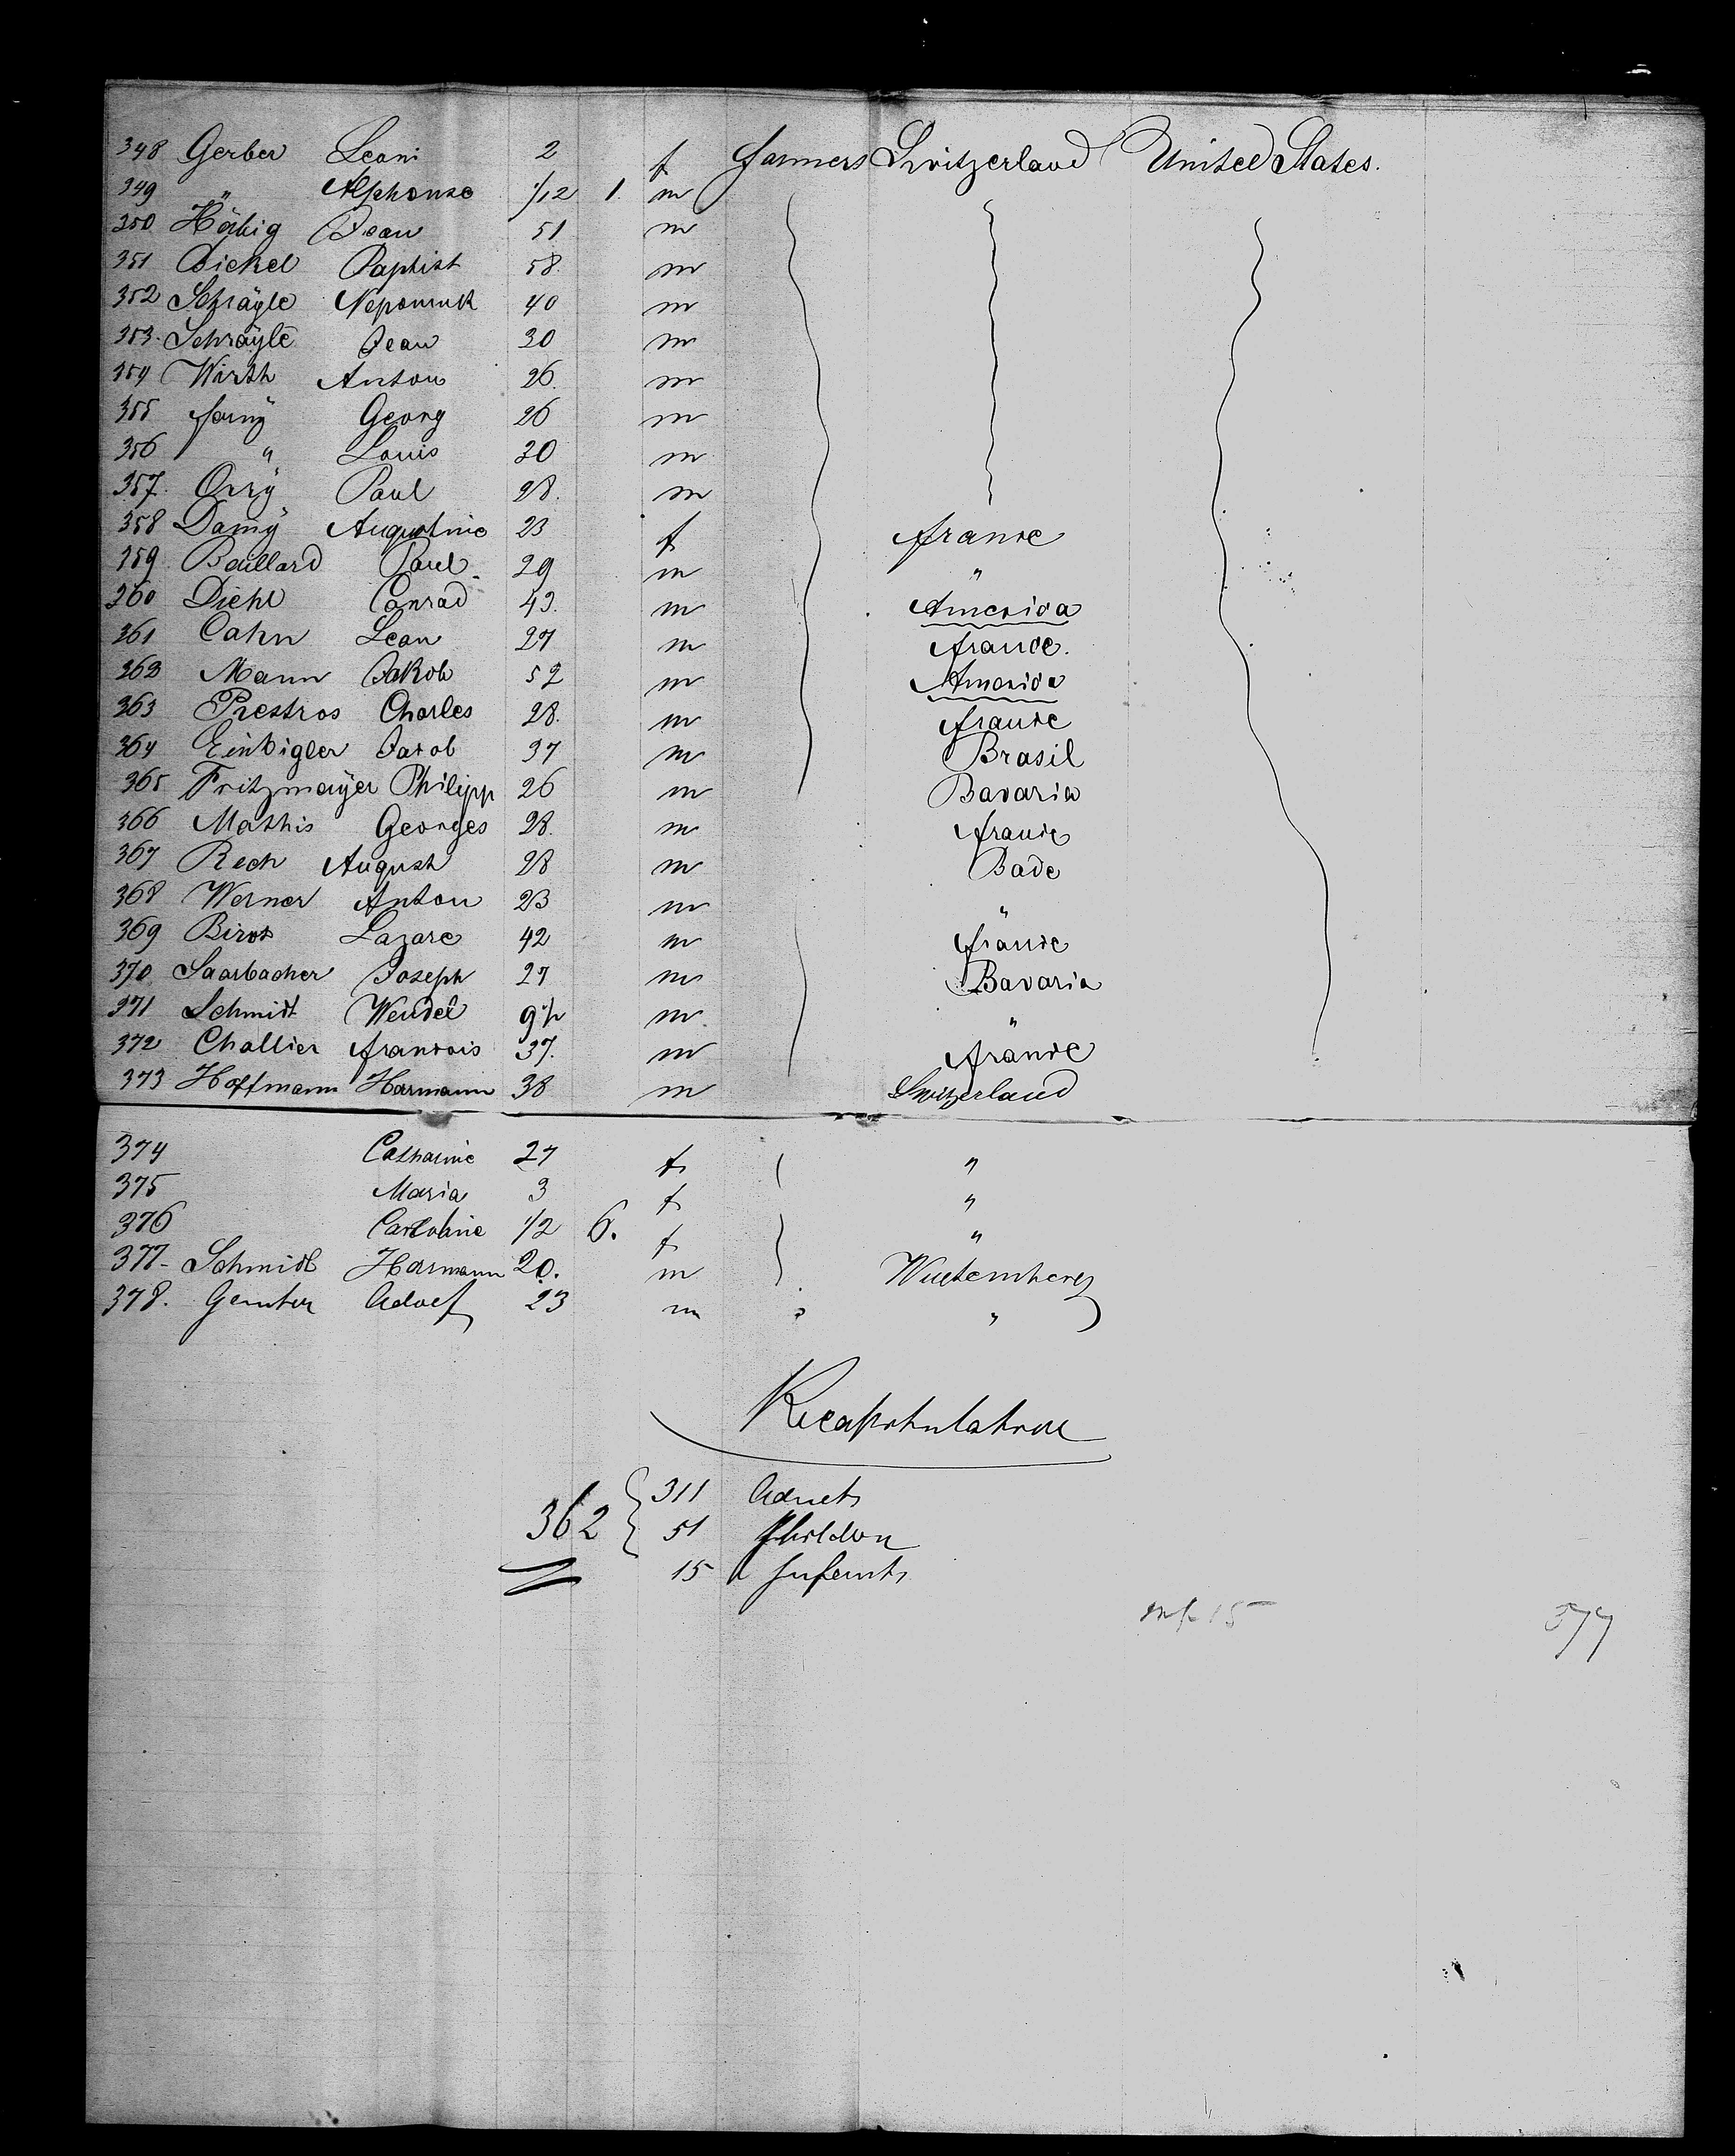 348 Gerber Leoni 2 f farmers Switzerland United States.
349 " Alphonse 1/12 1. m
350 Häbig Jean 51 m
351 Dickel Baptist 58. m
352 Schräyle Nepomuk 40 m
353. Schräyle Jean 30 m
354 Wirth Anton 26. m
355 Georg 26 m
356 " Louis 30 m
357. Orsÿ Paul 28. m
358 Damÿ Augustine 23 f france
359 Baillard Paul 29 m "
360 Diehl Conrad 43. m America
361 Cahn Leon 27 m france.
362 Mann Jakob 52 m America
363 Prestros Charles 28. m france
364 Einbigler Jacob 37 m Brasil
365 Fritzmayer Philipp 26 m Bavaria
366 Mathis Georges 28. m france
367 Rech August 28 m Bade
368 Werner Anton 23 m "
369 Birot Lazare 42 m france
370 Saarbacher Joseph 27 m Bavaria
371 Schmidt Wendel m "
372 Challier francois 37. m france
373 Hoffmann Harmann 38 m Switzerland
374 Catharine 27 f "
375 Maria 3 f "
376 Caroline 1/2 6. f "
377- Schmidt Harmann 20. m Wurtemberg
378. Adolf 23 m "
Recapitulation
311 Adults
362 51 Children
15 Infants
inf 15 377